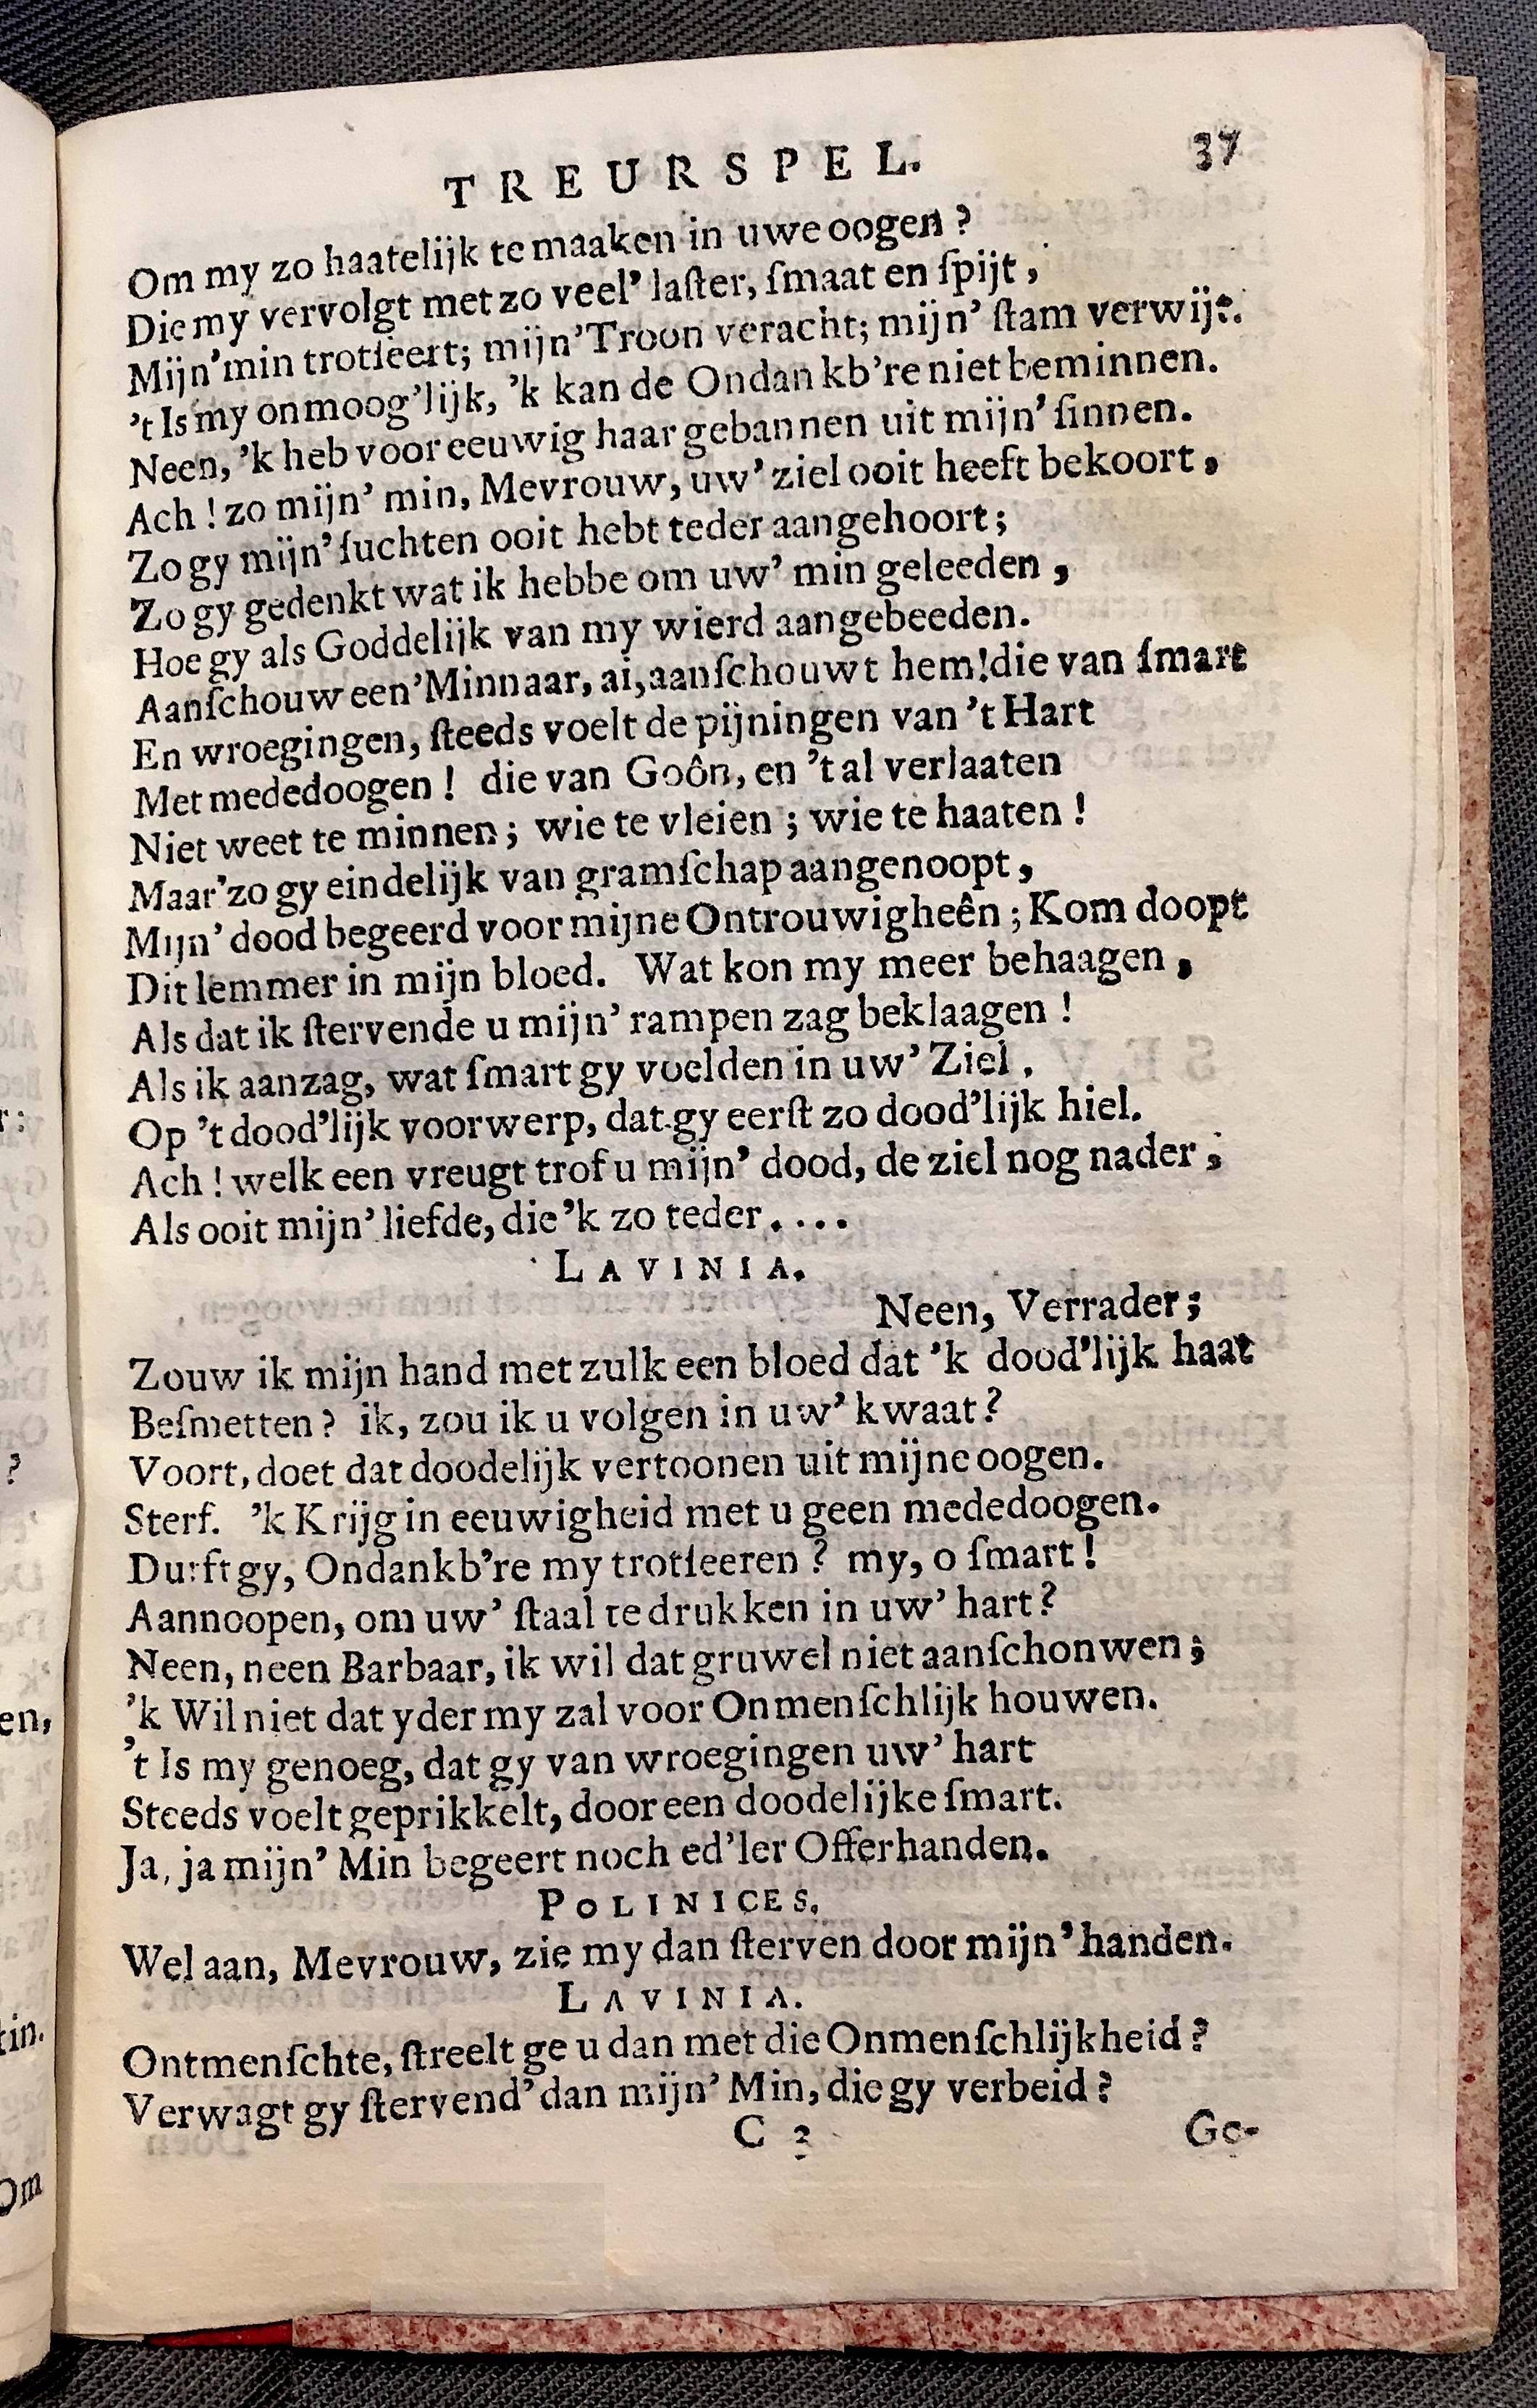 TREURSPEL. 37
Om my zo haatelijk te maaken in uwe oogen?
Die my vervolgt met zo veel' laſter, ſmaat en ſpijt,
Mijn' min trotſeert; mijn' Troon veracht; mijn' ſtam verwijt.
't Is my onmoog'lijk, 'k kan de Ondankb're niet beminnen.
Neen, 'k heb voor eeuwig haar gebannen uit mijn' ſinnen.
Ach! zo mijn' min, Mevrouw, uw' ziel ooit heeft bekoort,
Zo gy mijn' ſuchten ooit hebt teder aangehoort;
Zo gy gedenkt wat ik hebbe om uw' min geleeden,
Hoe gy als Goddelijk van my wierd aangebeeden.
Aanſchouw een' Minnaar, ai, aanſchouwt hem! die van ſmart
En wroegingen, ſteeds voelt de pijningen van 't Hart
Met mededoogen! die van Goôn, en 't al verlaaten
Niet weet te minnen; wie te vleien; wie te haaten!
Maar' zo gy eindelijk van gramſchap aangenoopt,
Mijn' dood begeerd voor mijne Ontrouwigheên; Kom doopt
Dit lemmer in mijn bloed. Wat kon my meer behaagen,
Als dat ik ſtervende u mijn' rampen zag beklaagen!
Als ik aanzag, wat ſmart gy voelden in uw' Ziel.
Op 't dood'lijk voorwerp, dat gy eerſt zo dood'lijk hiel.
Ach! welk een vreugt trof u mijn' dood, de ziel nog nader;
Als ooit mijn' liefde, die 'k zo teder....
LAVINIA.
Neen, Verrader;
Zouw ik mijn hand met zulk een bloed dat 'k dood'lijk haat
Beſmetten? ik, zou ik u volgen in uw' kwaat?
Voort, doet dat doodelijk vertoonen uit mijne oogen.
Sterf. 'k Krijg in eeuwigheid met u geen mededoogen.
Durft gy, Ondankb're my trotſeeren? my, o ſmart!
Aannoopen, om uw' ſtaal te drukken in uw' hart?
Neen, neen Barbaar, ik wil dat gruwel niet aanſchonwen;
'k Wil niet dat yder my zal voor Onmenſchlijk houwen.
't Is my genoeg, dat gy van wroegingen uw' hart
Steeds voelt geprikkelt, door een doodelijke ſmart.
Ja, ja mijn' Min begeert noch ed'ler Offerhanden.
POLINICES.
Wel aan, Mevrouw, zie my dan ſterven door mijn' handen.
LAVINIA.
Ontmenſchte, ſtreelt ge u dan met die Onmenſchlijkheid?
Verwagt gy ſtervend' dan mijn' Min, die gy verbeid?
C 2 Ge-